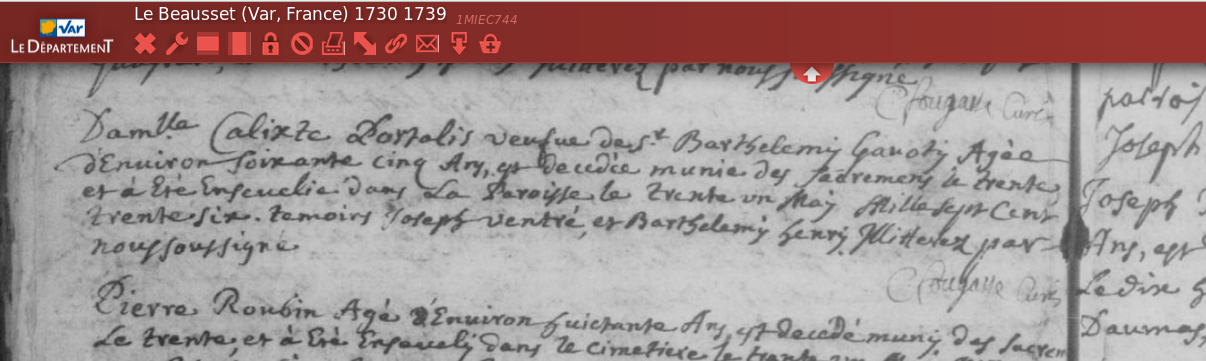 Le Beausset (Var, France) 1730 1739 1MIEC744
Var
LE DÉPARTEMENT
par nous soussigné
Fougasse Curé
paroiss
Dam.lle Calixte Portalis veufue de s.r Barthelemy Gavoty Agée
Joseph
d'Environ soixante cinq Ans, est decedée munie des sacremens le trente
et à Eté Enseuelie dans La Paroisse le trente un May Mille sept Cent
Joseph
trente six. temoins Joseph ventré, et Barthelemy henry Illitterez par
nous soussigné
Ans, est
Fougasse Curé
Le dix
Pierre Roubin Agé d'Environ huictante Ans, est decedé muny des sacrem
Daumas,
Le trente, et à Eté Enseuely dans le cimetiere le trente un